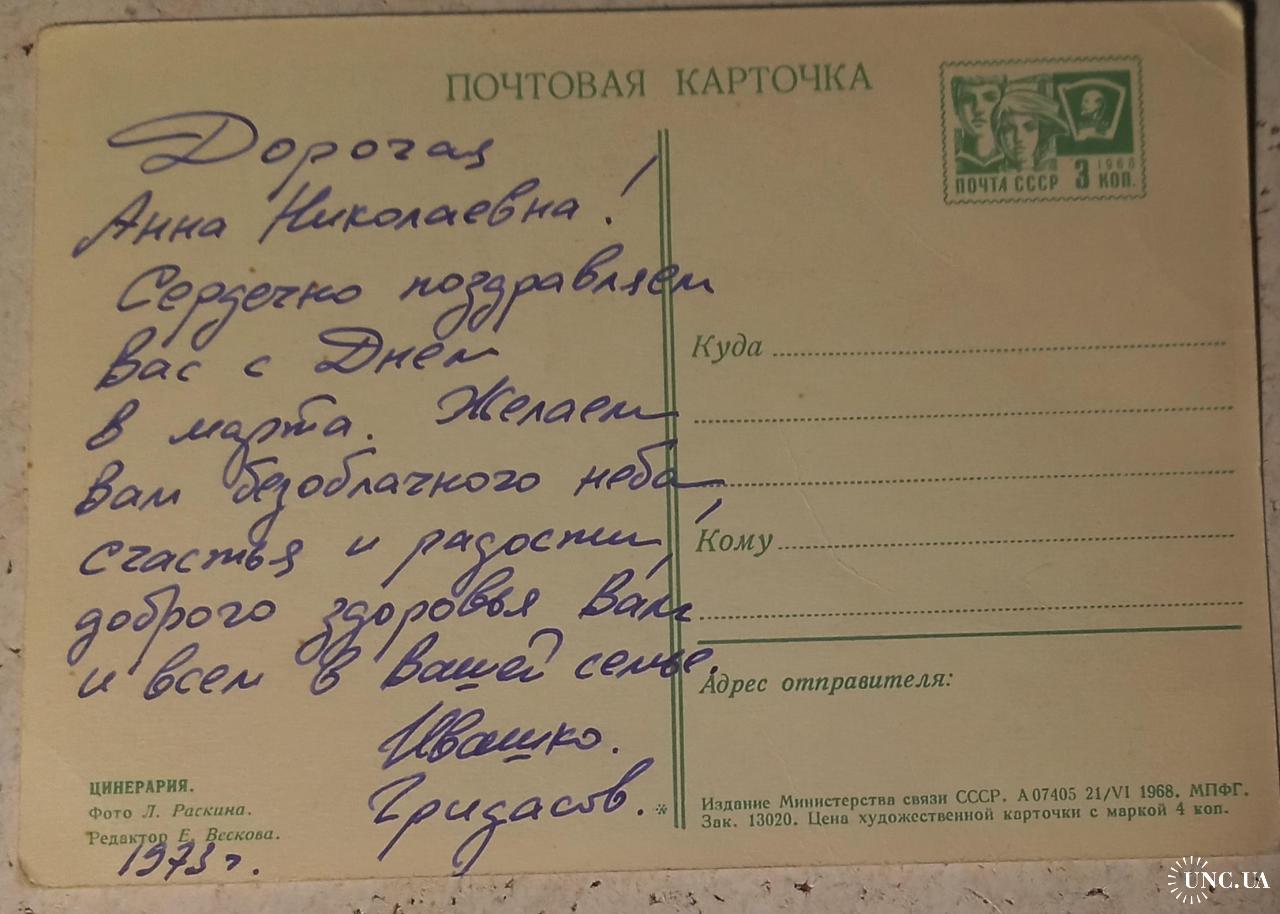 ПОЧТОВАЯ КАРТОЧКА
ПОЧТА СССР 3 1968 КОП.
Дорогая
Анна Николаевна!
Сердечно поздравляем
Вас с Днем
8 марта. Желаем
Вам безоблачного неба,
счастья и радости,
доброго здоровья Вам
и всем в Вашей семье.
Ивашко.
Гридасов.
1973 г.
ЦИНЕРАРИЯ.
Фото Л. Раскина.
Редактор Е. Вескова.
Куда
Кому
Адрес отправителя:
Издание Министерства связи СССР. А 07405 21/VI 1968. МПФГ.
Зак. 13020. Цена художественной карточки с маркой 4 коп.
UNC.UA